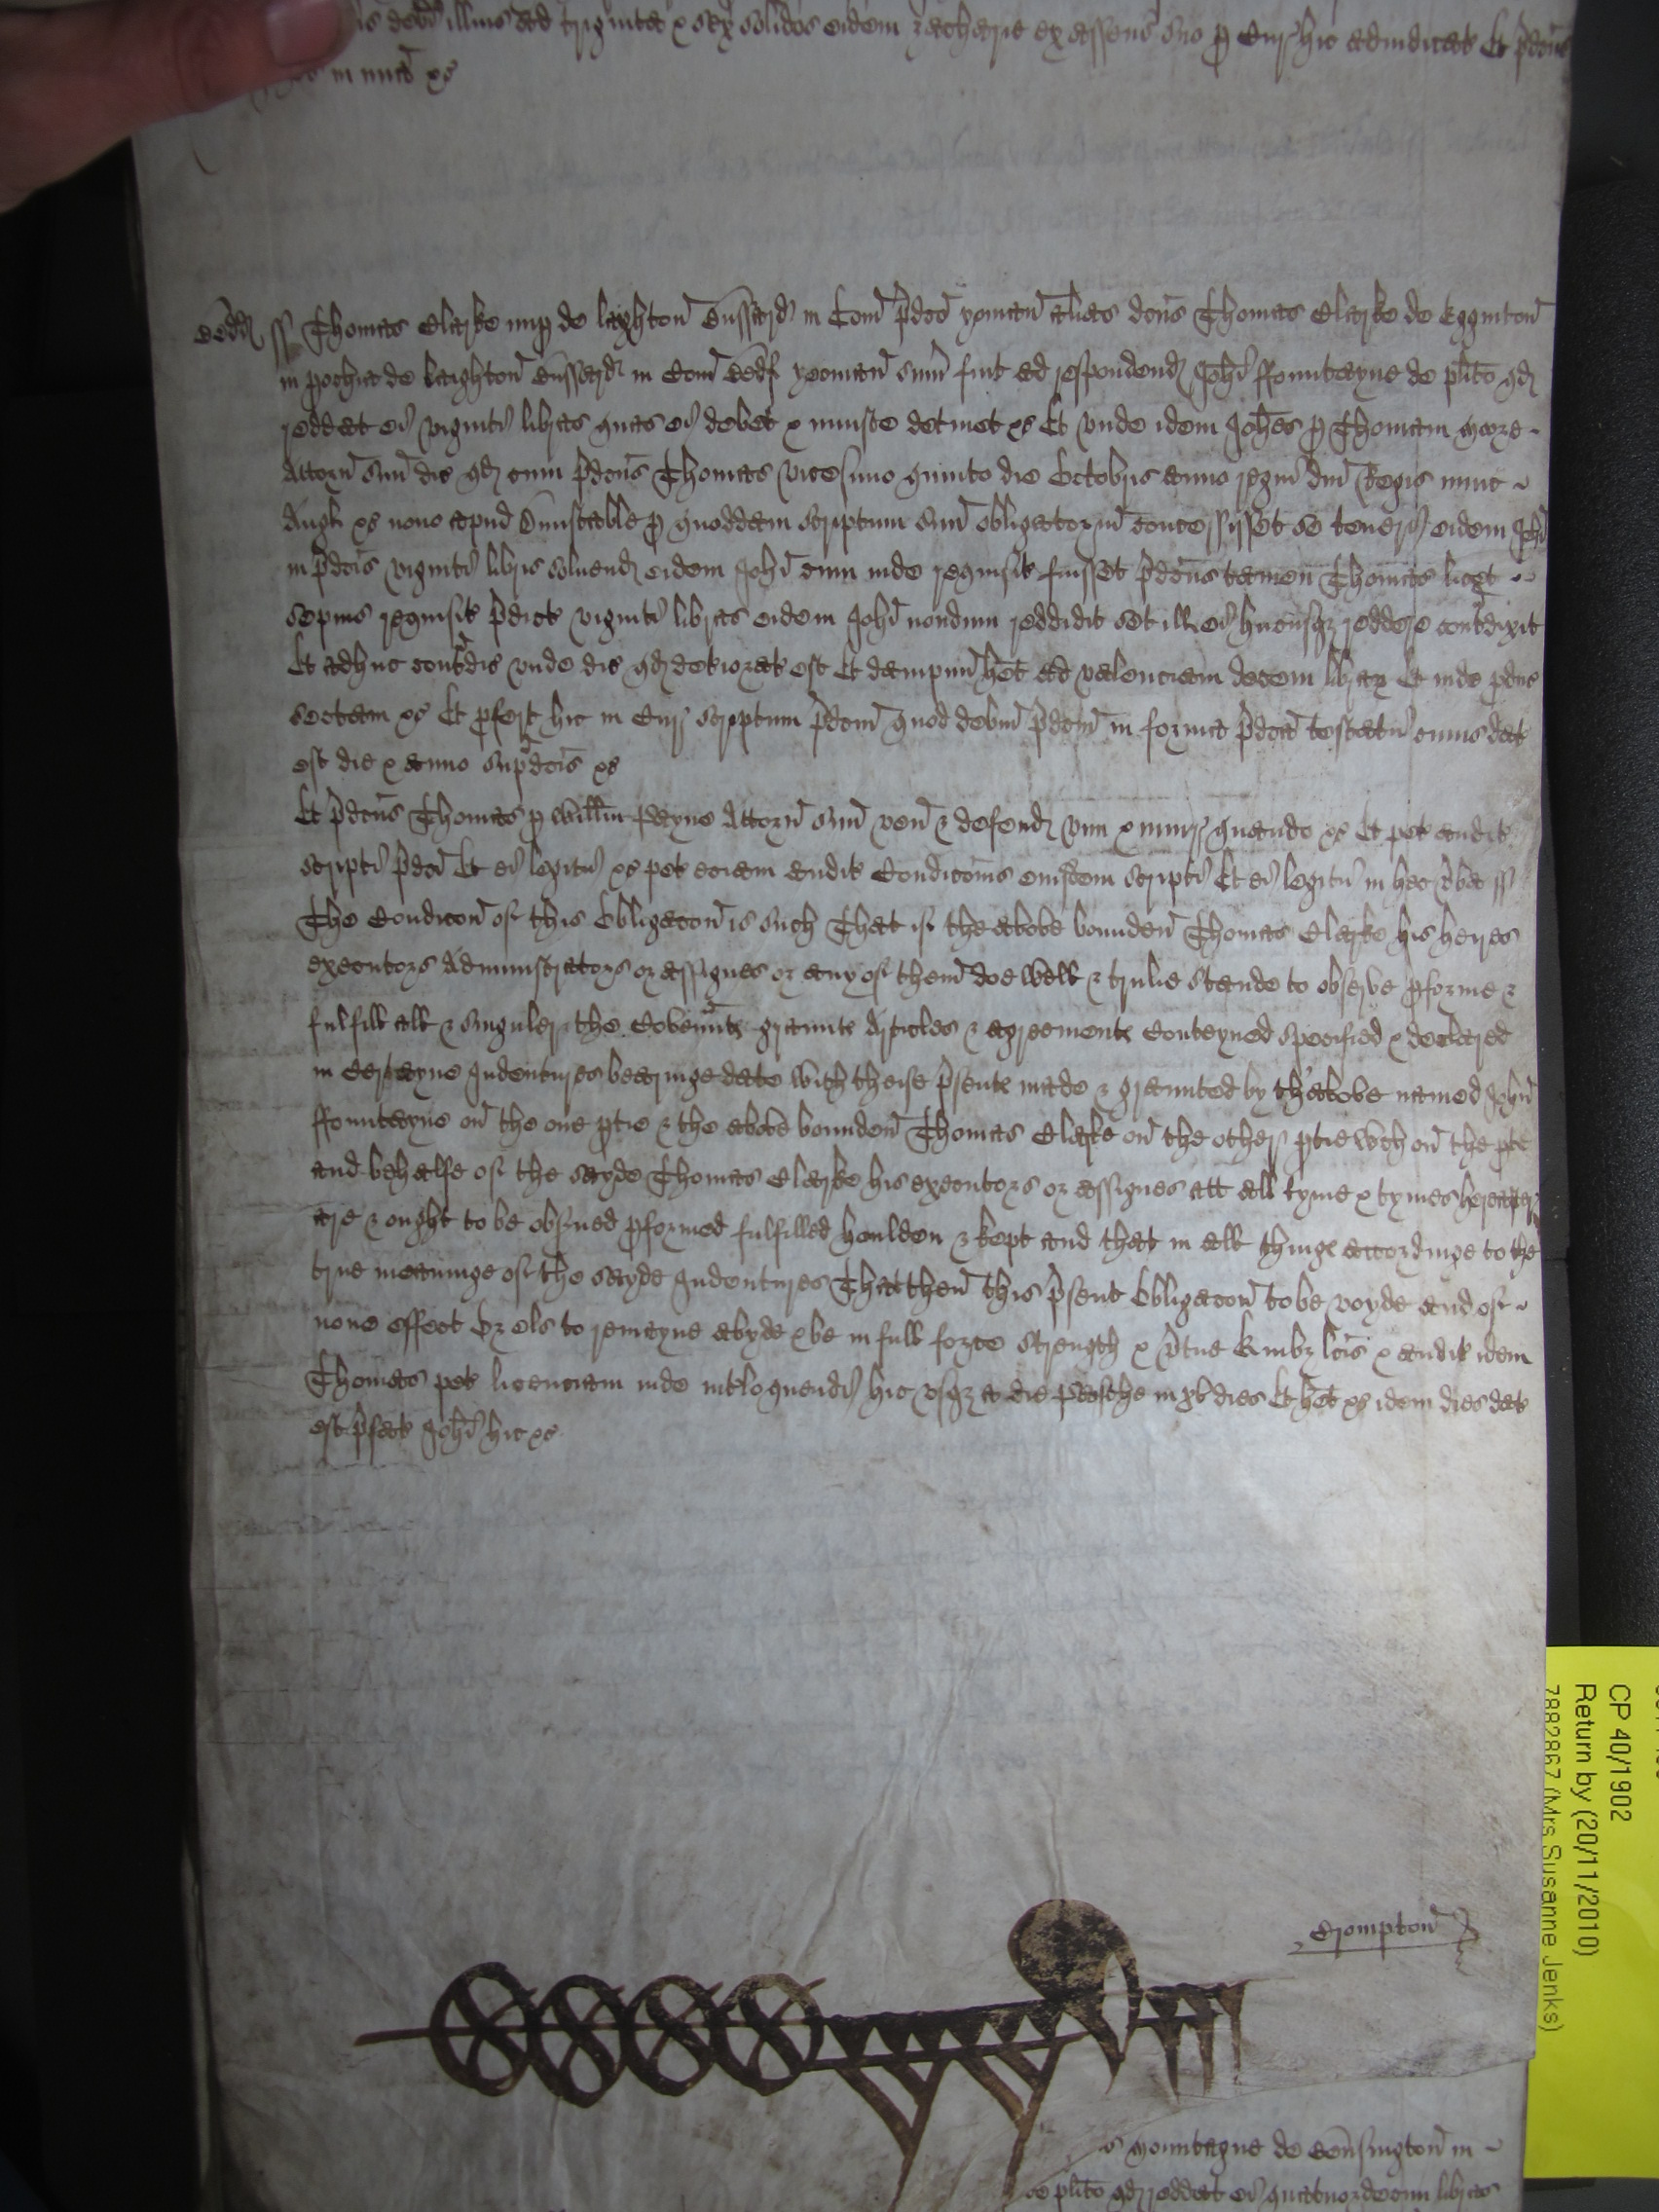 debi illius ad triginta & sex solidos eidem Zacharie ex assensu suo p Cur hic adiudicat Et pdcus
in mia &c
Bedd ss Thomas Clarke nup de Leighton Bussard in Com pdco yoman alias dcus Thomas Clarke de Egginton
in pochia de Leighton Bussard in Com Bedf yeoman sum fuit ad respondend Johi Fountayne de plito qd
reddat ei viginti libras quas ei debet & iniuste detinet &c Et unde idem Johes p Thomam More
Attorn suu dic qd cum pdcus Thomas vicesimo quinto die Octobris anno regni dni Regis nunc
Angl &c nono apud Dunstable p quoddam scriptum suu obligatoriu concessisset se teneri eidem Johi
in pdcis viginti libris solvend eidem Johi cum inde requisit fuisset pdcus tamen Thomas licet
sepius requisit pdict viginti libras eidem Johi nondum reddidit set ill ei hucusqz reddere contradixit
Et adhuc contradic unde dic qd deteriorat est Et dampnum het ad valenciam decem librarz Et inde pduc
sectam &c Et pfert hic in Cur scriptum pdcm quod debm pdcm in forma pdca testatur cuius dat
est die & anno supadcis &c
Et pdcus Thomas p Willm Payne Attorn suu ven & defend vim & iniur quando &c Et pet audit
scripti pdci Et ei legitur &c pet eciam audit Condicois eiusdem scripti Et ei legitur in hec verba ss
The Condicon of this Obligacon is such That if the above bounden Thomas Clarke his heyres
executors Administrators or assignes or any of them doe well & trulie stande to observe pforme &
fulfill all & singuler the Covennts graunts Articles & agreements Conteyned specified & declared
in Certayne Indentures bearinge date with theise psents made & graunted by th'above named John
Fountayne on the one ptie & the above bounden Thomas Clarke on the other ptie wch on the pte
and behalfe of the sayde Thomas Clarke his executors or assignes att all tyme & tymes hereafter
are & ought to be obsrued pformed fulfilled houlden & kept and that in all things accordinge to the
true meaninge of the sayde Indentures That then this psent Obligacon to be voyde and of
none effect Or els to remayne abyde & be in full force strength & vertue Quibz lcis & audit idem
Thomas pet licenciam inde intloquendi hic usqz a die Pasche in xv dies Et het &c idem dies dat
est pfat Johi hic &c
Crompton
Mountague de Kensington in
de plito qd reddat ei quatuordecim libras
CP 40/1902
Return by (20/11/2010)
7882867 (Mrs Susanne Jenks)